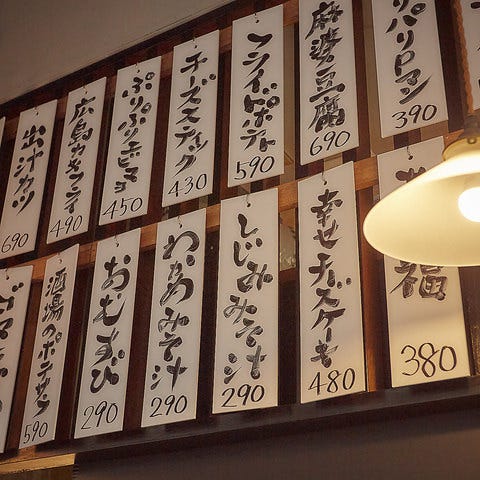 パリロマン
390
麻婆豆腐
690
フライドポテト
590
チーズスティック
430
ぷりぷりエビマヨ
450
広島カキフライ
490
出汁カツ
690
福
380
幸せチーズケーキ
480
しじみみそ汁
290
わかめみそ汁
290
おむすび
290
酒場のポテサラ
590